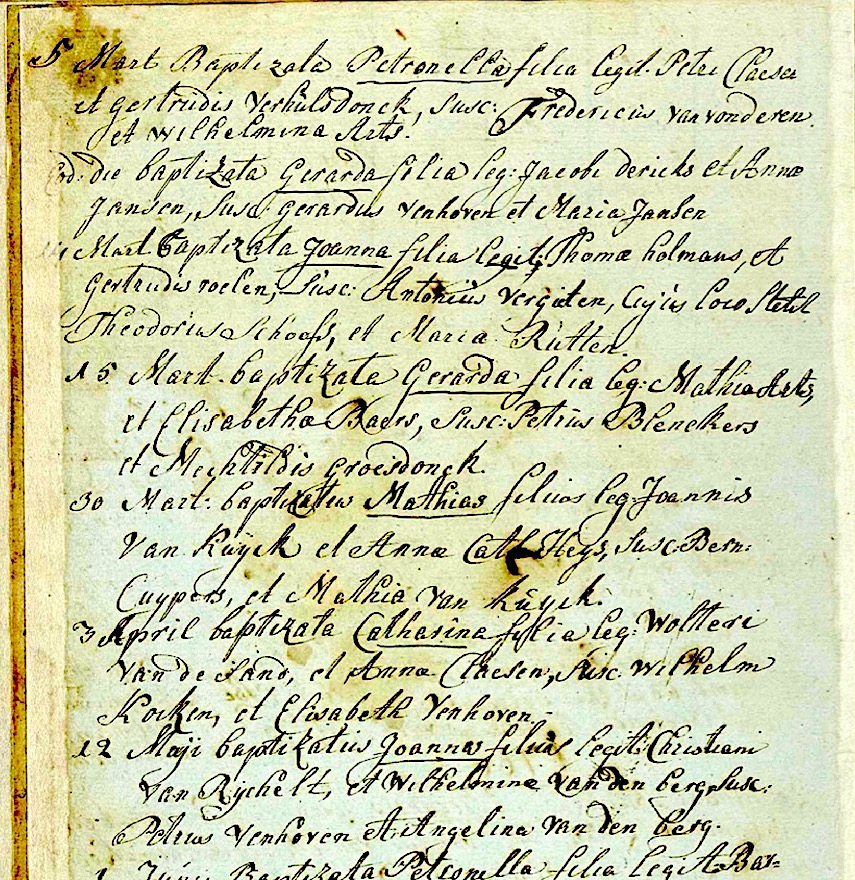 5 Mart Baptizata Petronella filia legit. Petri Claesen
et gertrudis Verhulsdonck, Susc: Fredericus van vonderen.
et Wilhelmina Arts.
Ead: die baptizata Gerarda filia leg: Jacobi dericks et Annæ
Jansen, Susc: gerardus Venhoven et Maria Jansen
Mart. baptizata Joanna filia legit: Thomæ holmans, et
gertrudis roelen, Susc: Antonius Vergaten, Cujus loco stetit
Theodorus Schoofs, et Maria Rutten.
15 Mart. baptizata Gerarda filia leg: Mathiæ Arts,
et Elisabethæ Baers, Susc: Petrus Blenckers
et Mechtildis groesdonck.
30 Mart: baptizatus Mathias filius leg: Joannis
Van Kuyck et Annæ Cath Heys, Susc: Bern:
Cuypers, et Mathia Van Kuyck.
3 April baptizata Catharina filia leg: Wolteri
Van de Sand, et Annæ Claesen, Susc. Wilhelm
Kocken, et Elisabeth Venhoven.
12 Maji baptizatus Joannes filius legit: Christiani
Van Rychelt, et Wilhelminæ Van den berg, Susc:
Petrus Venhoven et Angelina van den berg.
1 Juni Baptizata Petronella filia legit Bar=